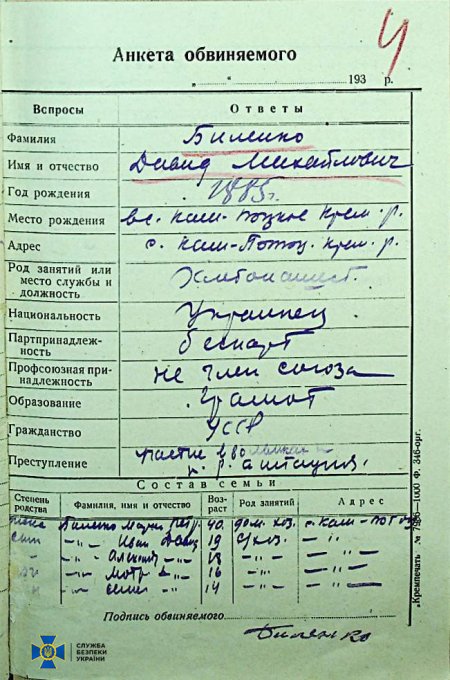 4
Анкета обвиняемого
„ “ 193 г.
Вопросы Ответы
Фамилия Биленко
Имя и отчество Давид Михайлович
Год рождения 1885г.
Место рождения вс. Кам-Поцкое Крем. р.
Адрес с. Кам-Потоц. Крем. р.
Род занятий или
место службы и
должность
Национальность Украинец
Партпринадлеж-
ность беспарт
Профсоюзная при-
надлежность не член союза
Образование грамот
Гражданство УССР
Преступление
к. р. агитация.
Состав семьи
Степень
родства Фамилия, имя и отчество Воз-
раст Род занятий Адрес
Биленко 40 дом. хоз. с. Кам-Поток
сын -„- Иван Давид 19 с/хоз. -„-
-„- -„- 18 -„- -„-
-„- 16 -„- -„-
-„- 14 -„- -„-
Подпись обвиняемого.
Биленко
„Кремпечать“ № 7986—1000 Ф. 346-орг.
СЛУЖБА
БЕЗПЕКИ
УКРАЇНИ